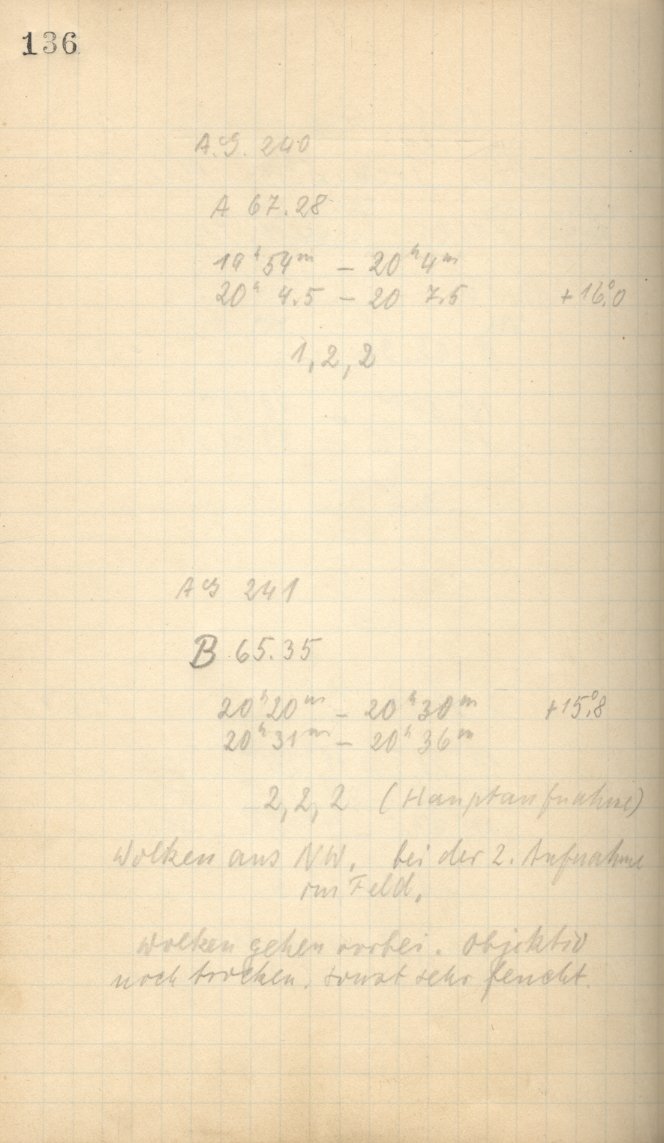 136
A.G. 240
A 67.28
19ʰ54ᵐ – 20ʰ4ᵐ
20ʰ 4.5 – 20 7.5 +16°.0
1, 2, 2
AG 241
B 65.35
20ʰ20ᵐ – 20ʰ30ᵐ +15°.8
20ʰ31ᵐ – 20ʰ36ᵐ
2, 2, 2 (Hauptaufnahme)
Wolken aus NW, bei der 2. Aufnahme
im Feld.
Wolken gehen vorbei. Objektiv
noch trocken, sonst sehr feucht.